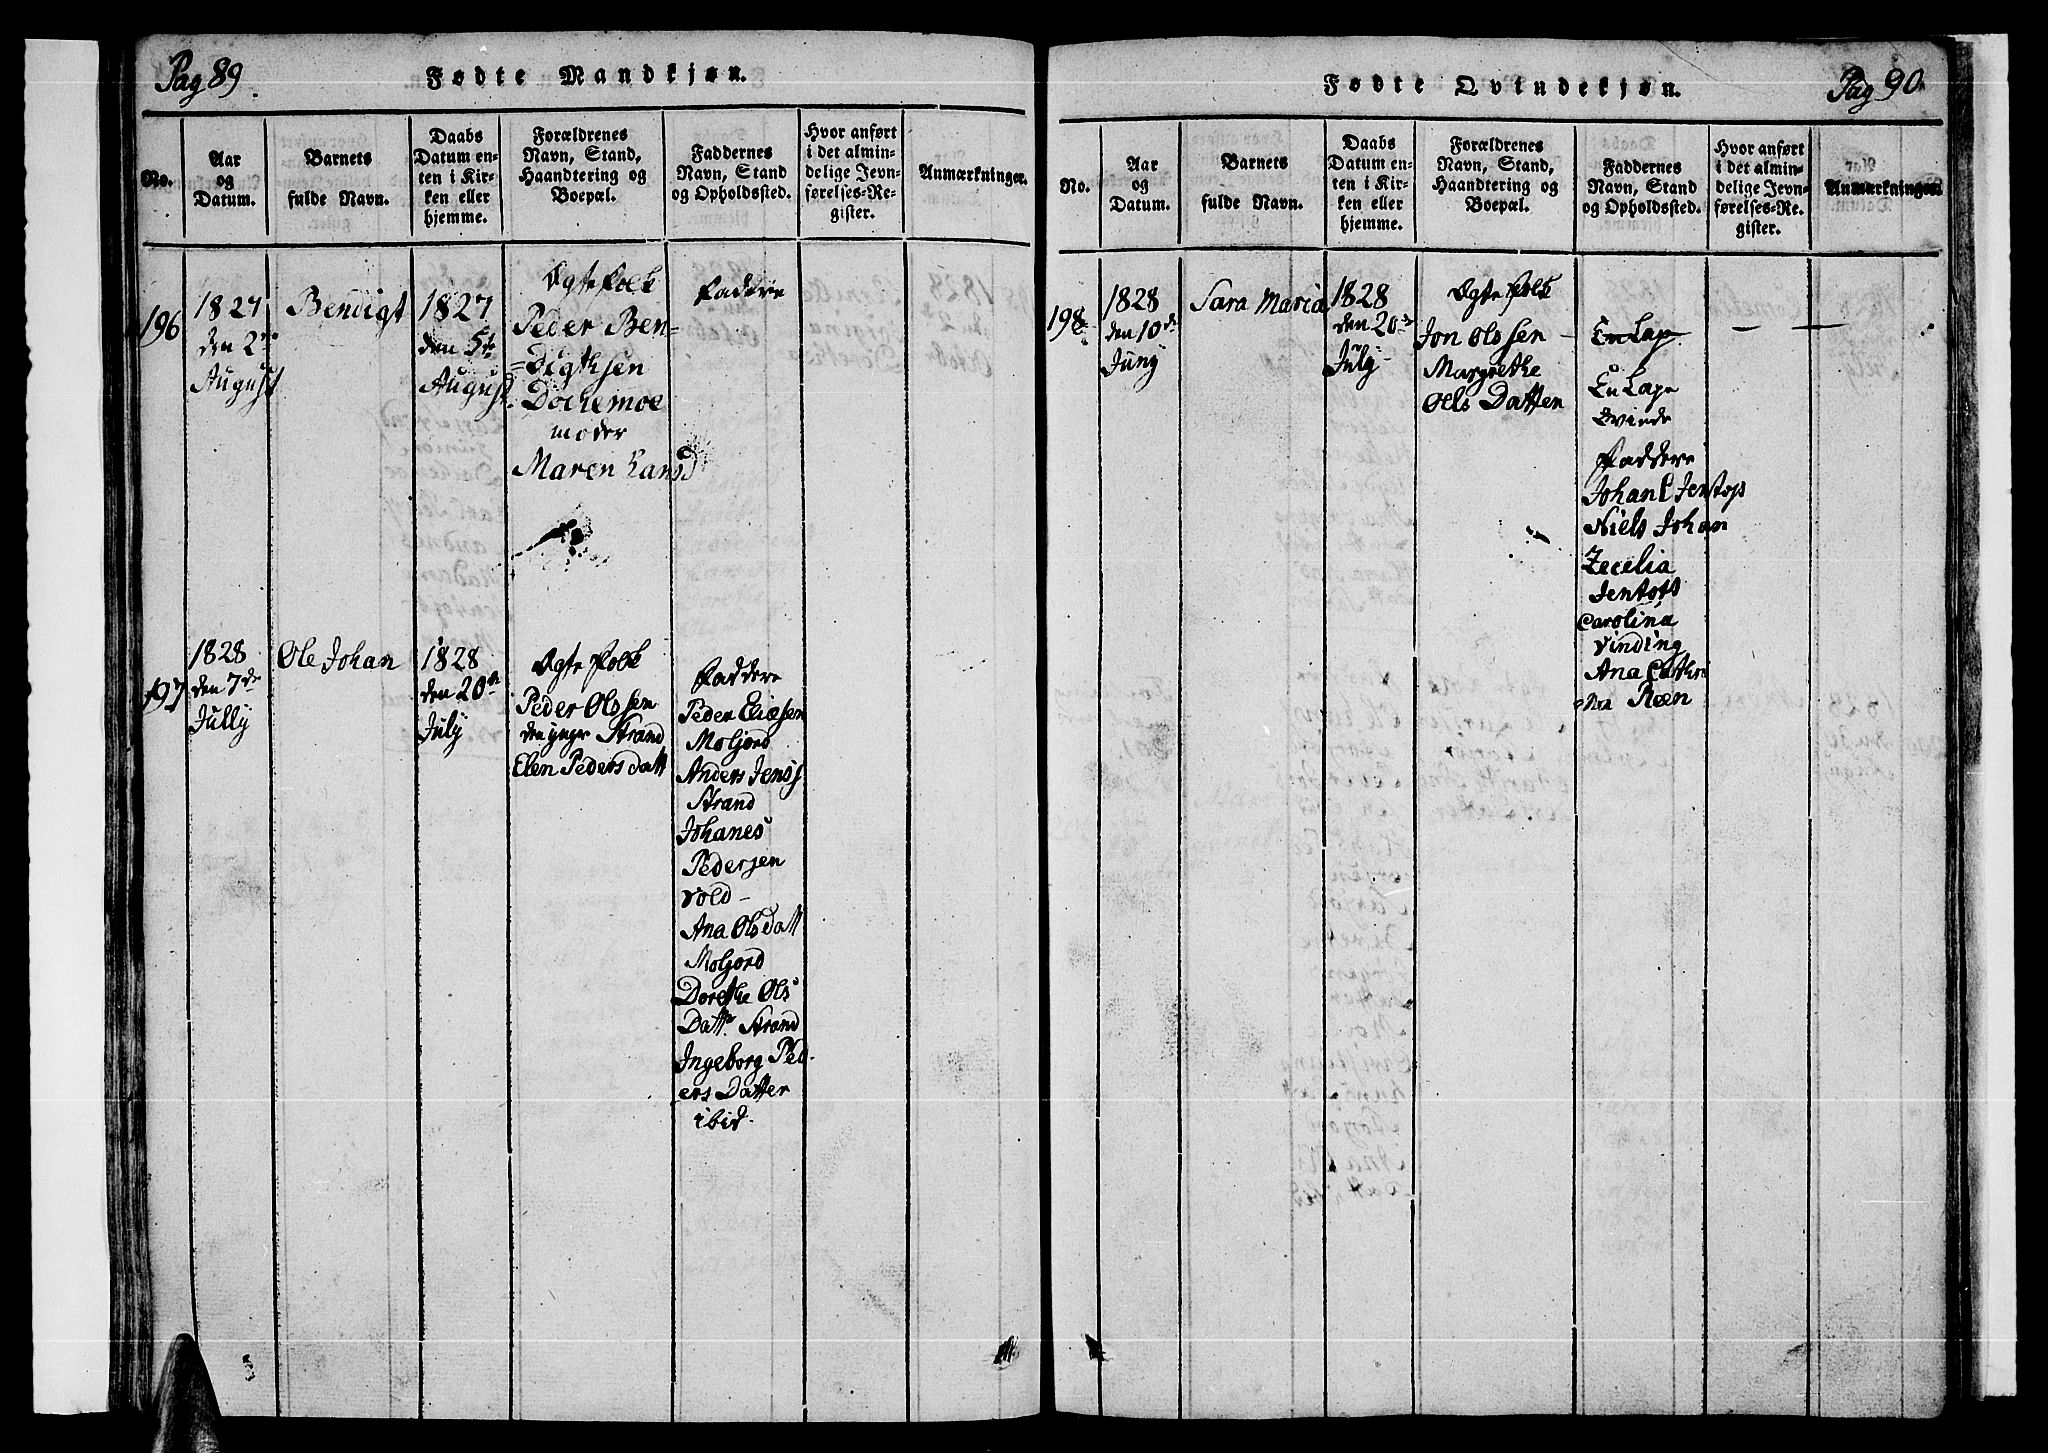 Pag 89.
Fødte Mandkjøn.
No.
Aar
og
Datum.
Barnets
fulde Navn.
Daabs
Datum en-
ten i Kir-
ken eller
hjemme.
Forældrenes
Navn, Stand,
Haandtering og
Boepæl.
Faddernes
Navn, Stand
og Opholdssted.
Hvor anført
i det almin-
delige Jevn-
førelses-Re-
gister.
Anmærkninger.
196
1827
den 2de
August
Bendigt
1827
den 5te
August
Ægte Folk
Peder Ben=
=Digtsen
moder
Maren
Faddere
197
1828
den 7de
Jully
Ole Johan
1828
den 20de
July
Ægte Folk
Peder Olssen
den ynger Strand
Elen Pedersdatt
Faddere
Peder Eliesen
Moljord
Anders Jens
Strand
Johanes
Pedersen
vold
Ana Olsdatt
Moljord
Dorethe Ols
Datt. Strand
Ingeborg Ped-
ers Datter
ibid.
Pag 90.
Fødte Qvindekjøn.
No.
Aar
og
Datum.
Barnets
fulde Navn.
Daabs
Datum en-
ten i Kir-
ken eller
hjemme.
Forældrenes
Navn, Stand,
Haandtering og
Boepæl.
Faddernes
Navn, Stand
og Opholdssted.
Hvor anført
i det almin-
delige Jevn-
førelses-Re-
gister.
Anmærkninger.
198
1828
den 10de
Juny
Sara Maria
1828
den 20de
July
Ægte Folk
Jon Olssen
Margrethe
Ols Datter
En Lap
En Lape
Qvinde
Faddere
Johan Jentofs
Niels Johan
Zecelia
Jentofs
Carolina
Vinding
Ana Cathri
na Røen